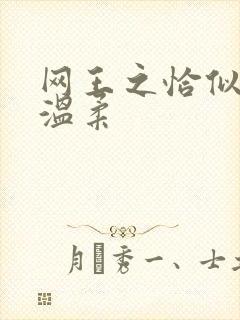 网王之恰似
温柔
月秀一、士